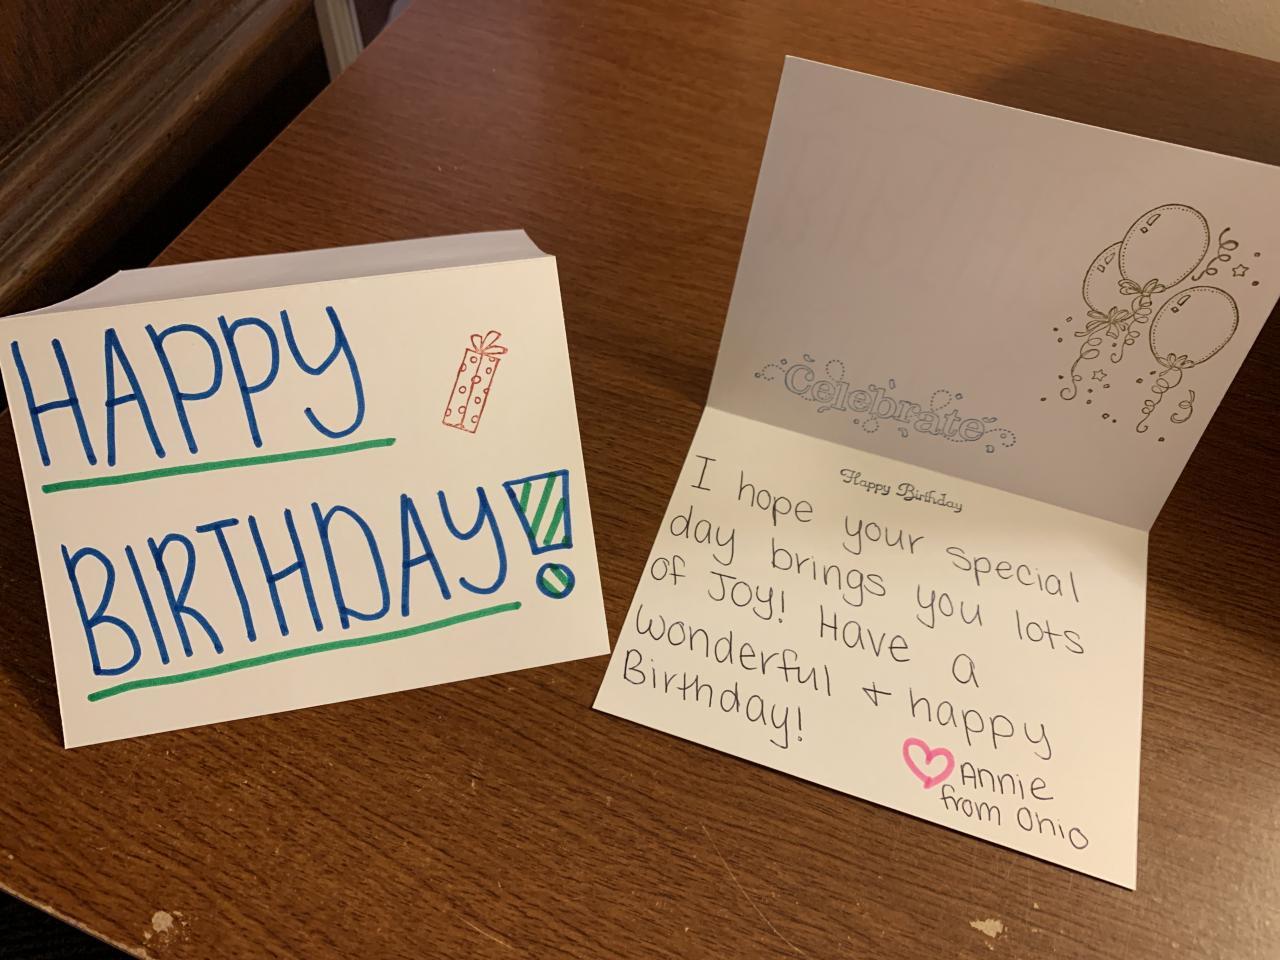 HAPPY
BIRTHDAY!
Celebrate
Happy Birthday
I hope your special
day brings you lots
of Joy! Have a
wonderful + happy
Birthday!
Annie
from Ohio